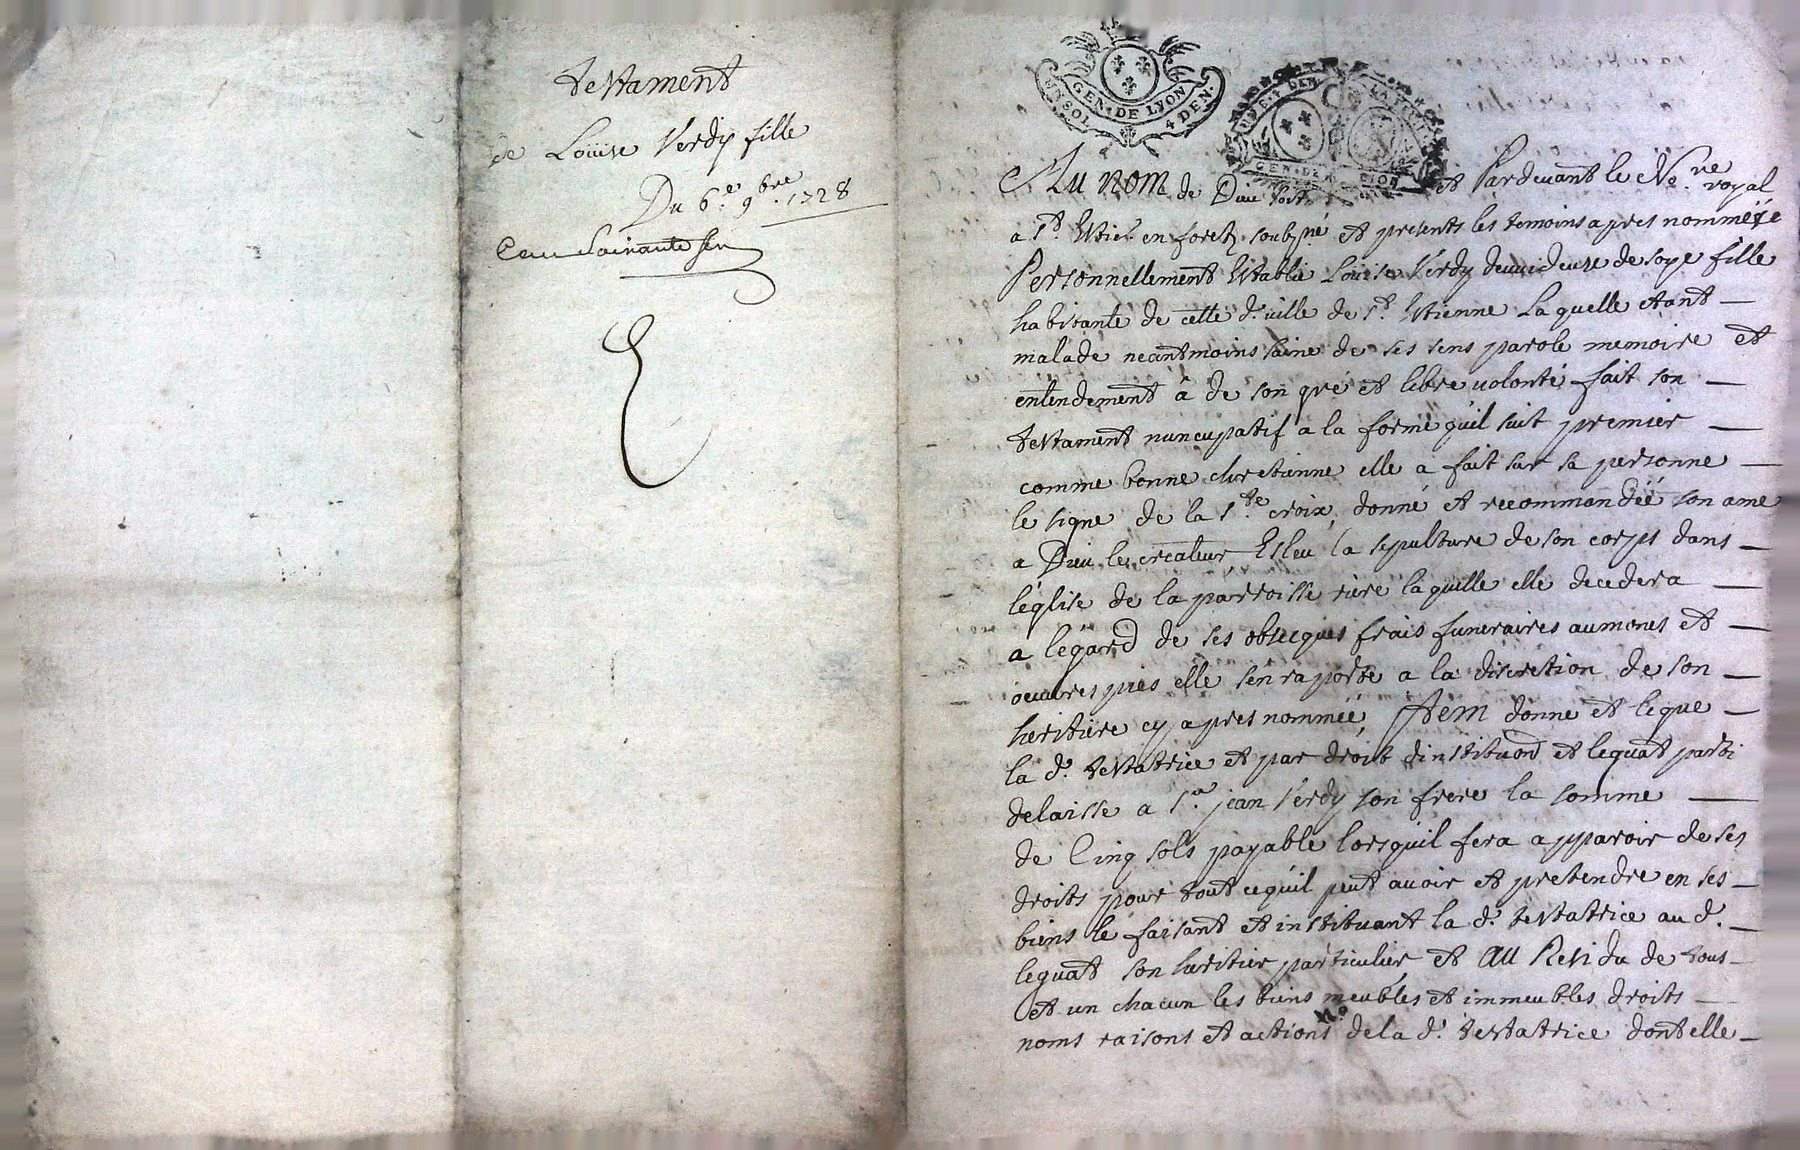 testament
de Loüise Verdy fille
Du 6.e 9.bre 1728
GEN. DE LYON
UN SOL 4 DEN.
Au nom de Dieu soit et Pardevant le No.re royal
a St. Etie. en forest soubz.né et presents les temoins apres nommés
Personnellement Establie Louise Verdy devuideuse de soye fille
habitante de cette d. ville de St. Etienne Laquelle etant
malade neantmoins saine de ses sens parole memoire et
entendement â de son gré et libre volonté fait son
testament nuncupatif a la forme qu'il suit premier
comme bonne chretienne elle a fait sur sa personne
le signe de la s.te croix, donné et recommandéé son ame
a Dieu le createur, Esleu la sepulture de son corps dans
léglise de la parroisse riere laquelle elle decedera
a légard de ses obseques frais funeraires aumones et
oeuvres pies elle s'en raporte a la discretion de son
heritiere cy apres nommée, Item donne et legue
la d. testatrice et par droit dinstituon et leguat parti
delaisse a Sr. jean Verdy son frere la somme
de Cinq sols payable lorsquil fera apparoir de ses
droits pour tout cequil peut avoir et pretendre en ses
biens le faisant et instituant la d. testatrice au d.
leguat son heritier particulier, et au Residu de tous
et un chacun les biens meubles et immeubles droits
noms raisons et actions dela d. testatrice dont elle